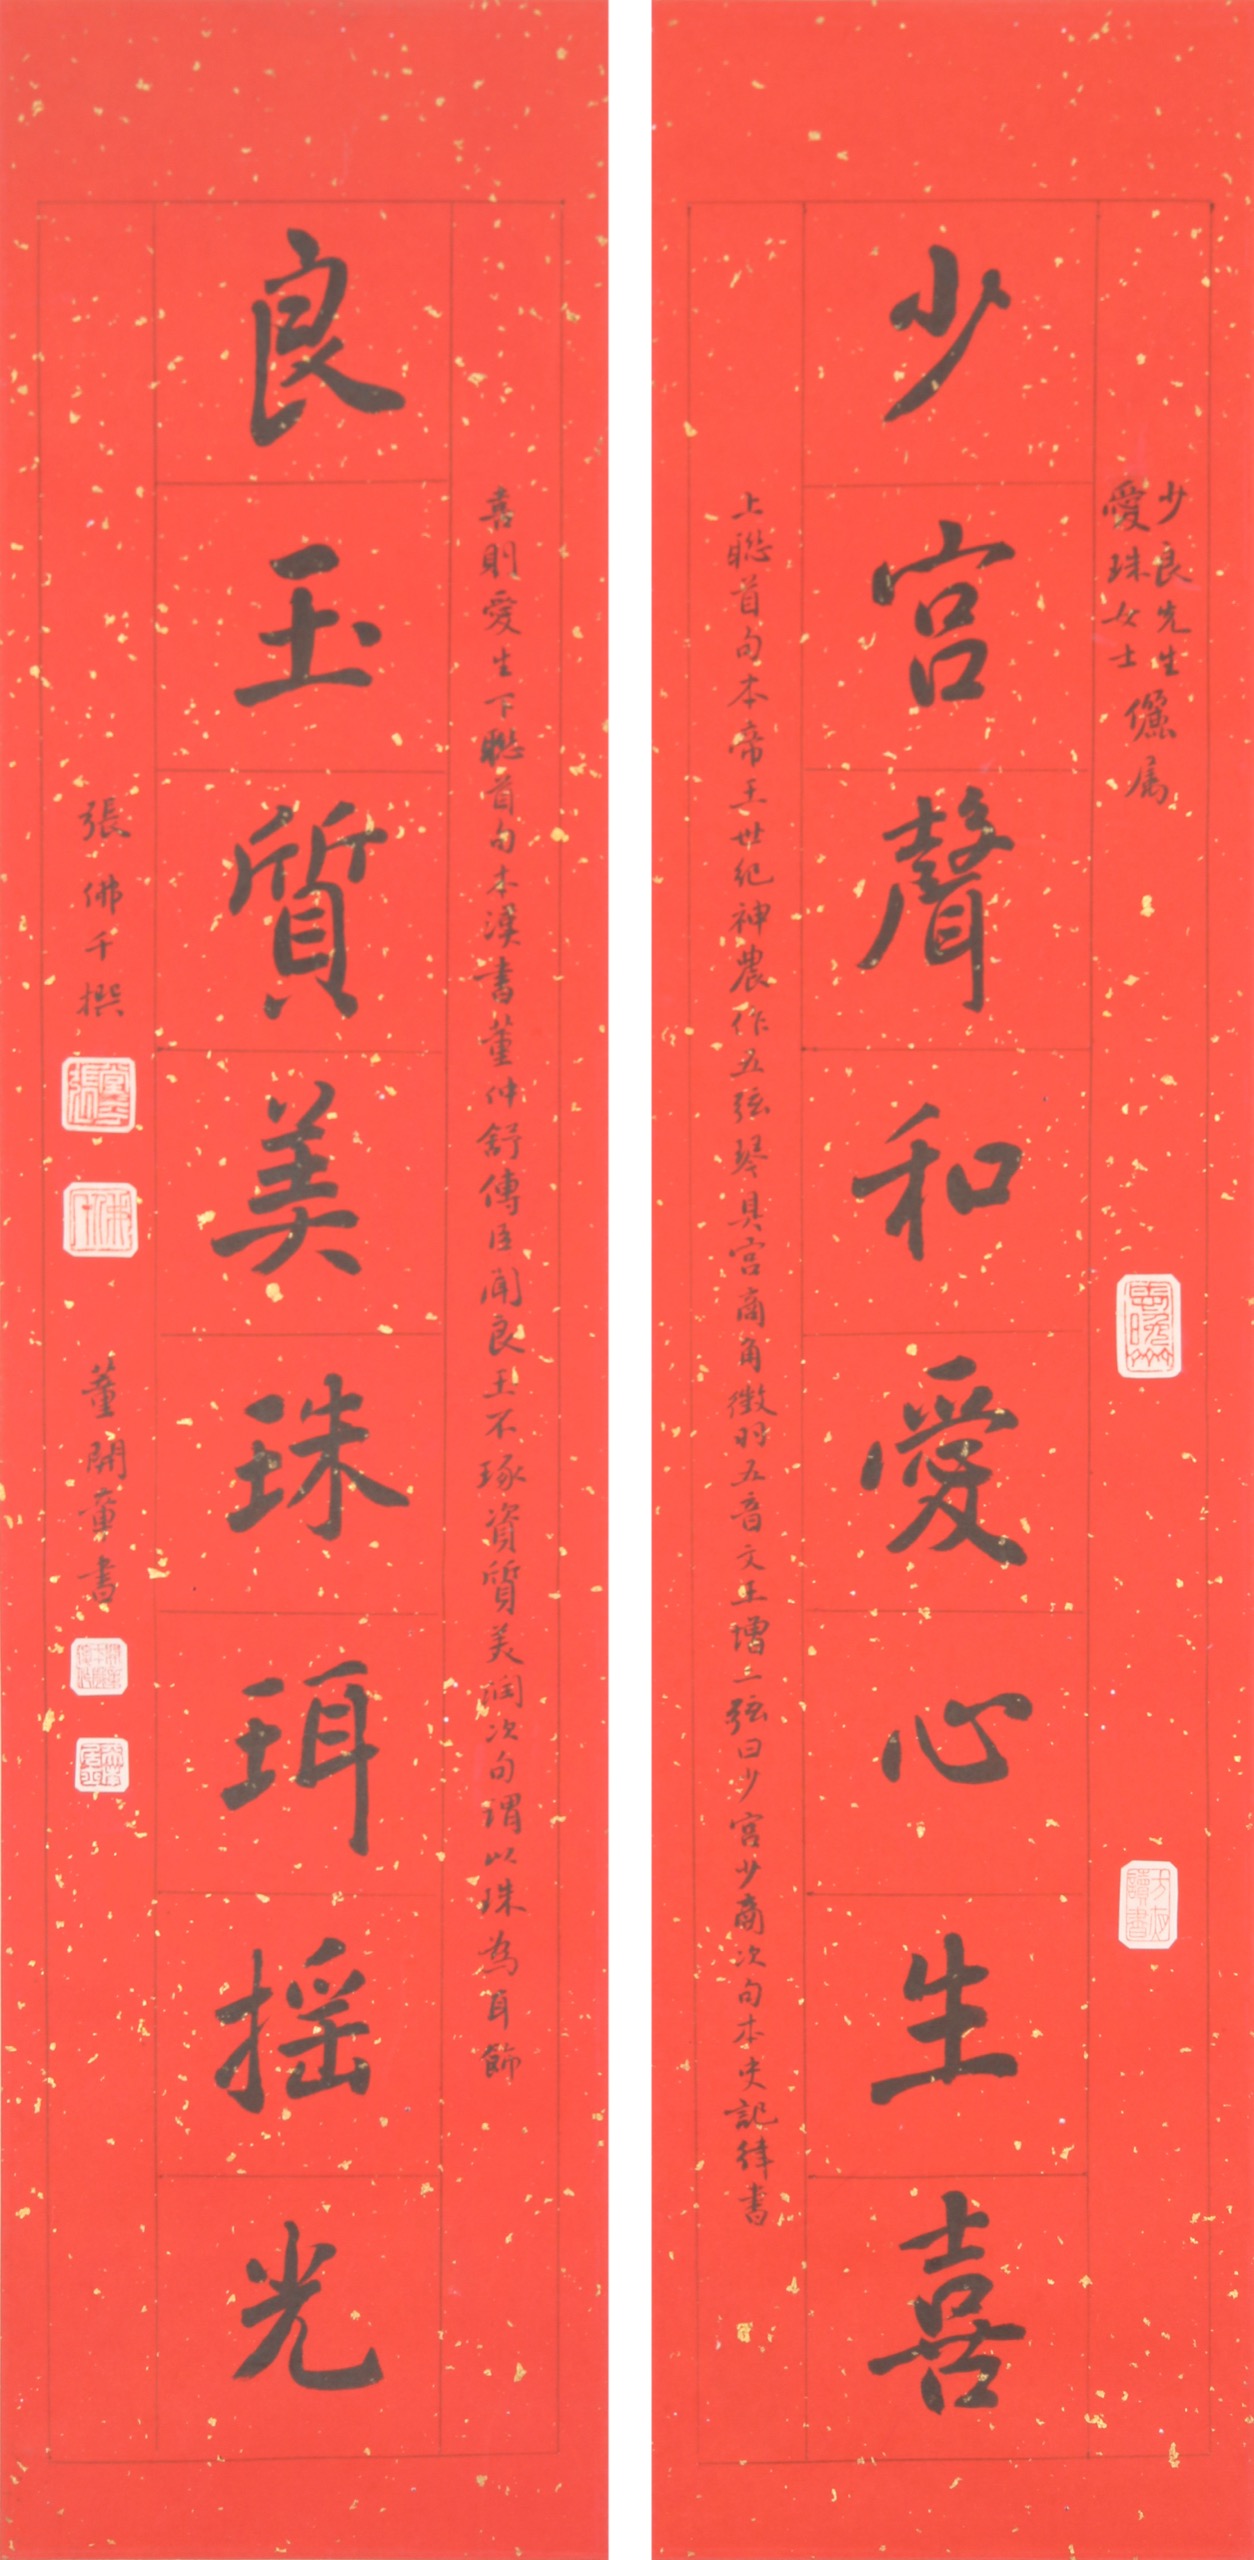 少良先生
愛珠女士
儷属
少宮聲和愛心生喜
上聮首句本帝王世紀神農作五弦琴具宮商角徵羽五音文王增二弦曰少宮少商次句本史記律書
喜則愛生下聮首句本漢書董仲舒傳臣聞良玉不琢資質美潤次句謂以珠為耳飾
良玉質美珠珥搖光
張佛千撰
董開章書